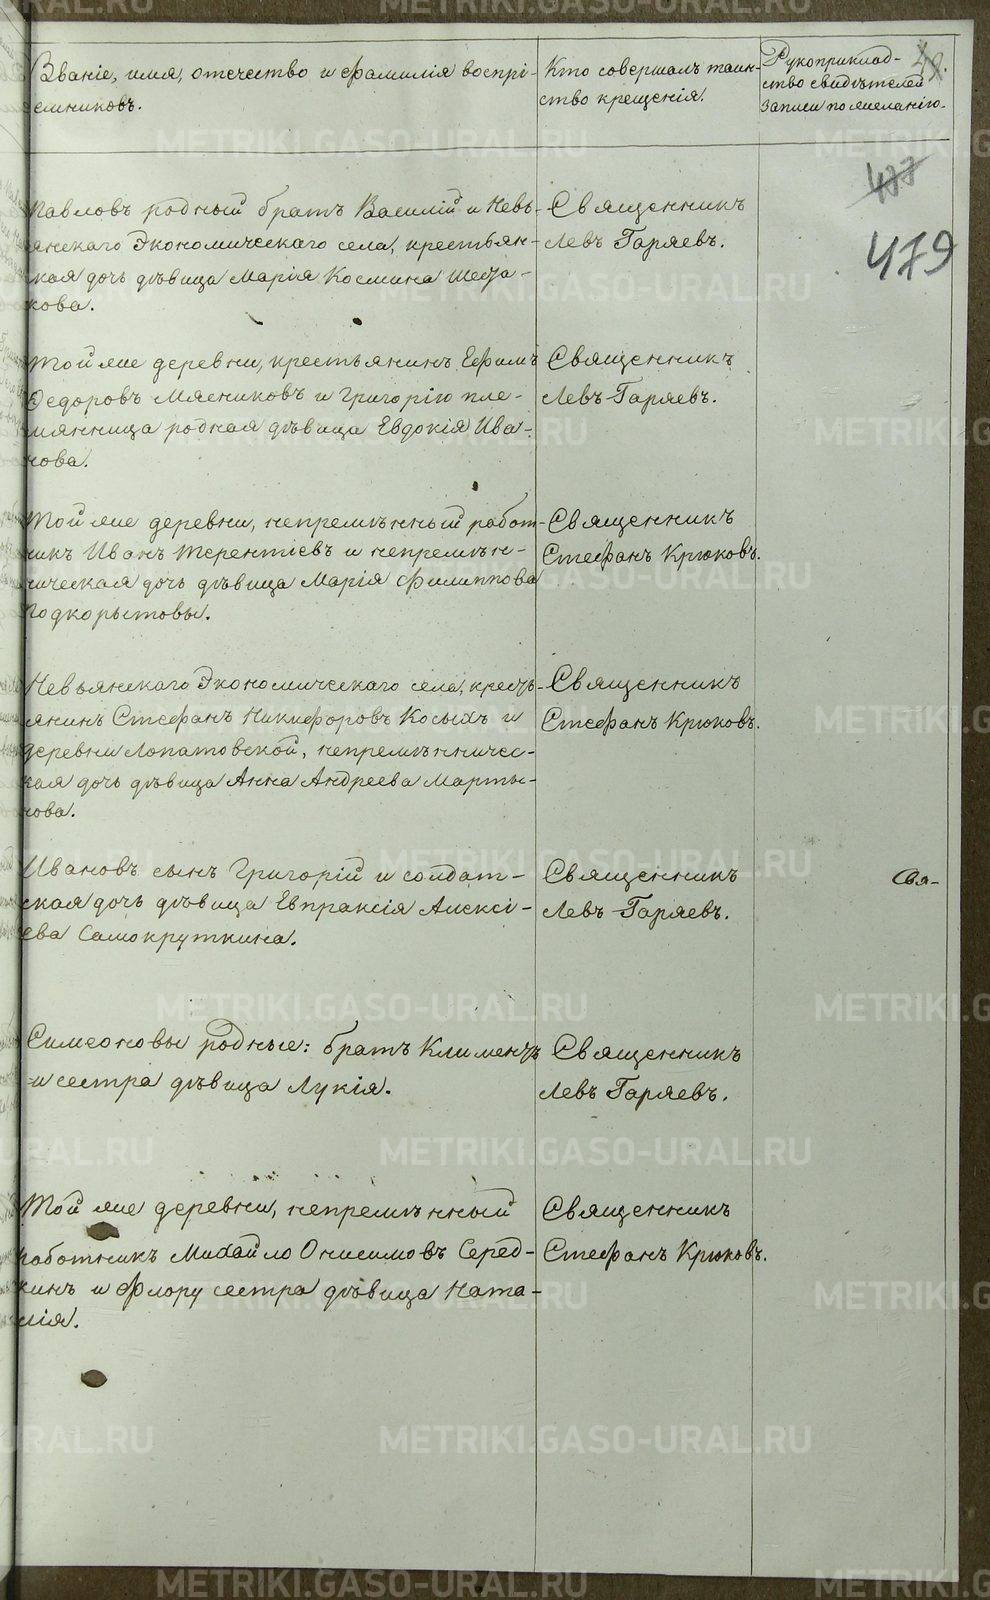 Званіе, имя, отечество и фамилія воспрі-
емниковъ.
Кто совершалъ таин-
ство крещенія.
Рукоприклад-
ство свидѣтелей
записи по желанію.
477
479
Павловъ родный братъ Василій и Невь-
янскаго Экономическаго села, крестьян-
ская дочь дѣвица Марія Космина Шеста-
кова.
Священникъ
Левъ Гаряевъ.
Той же деревни, крестьянинъ Ефимъ
Федоровъ Мясниковъ и Григорію пле-
мянница родная дѣвица Евдокія Ива-
нова.
Священникъ
Левъ Гаряевъ.
Той же деревни, непремѣнный работ-
никъ Иванъ Терентіевъ и непремѣн-
ническая дочь дѣвица Марія Филиппова
Подкорытовы.
Священникъ
Стефанъ Крюковъ.
Невьянскаго Экономическаго села, кресть-
янинъ Стефанъ Никифоровъ Косыхъ и
деревни Лопатовской, непремѣнничес-
кая дочь дѣвица Анна Андреева Марты-
нова.
Священникъ
Стефанъ Крюковъ.
Ивановъ сынъ Григорій и солдат-
ская дочь дѣвица Евпраксія Алексі-
ева Самокруткина.
Священникъ
Левъ Гаряевъ.
Свя-
Симеоновы родные: братъ Климентъ
и сестра дѣвица Лукія.
Священникъ
Левъ Гаряевъ.
Той же деревни, непремѣнный
работникъ Михайло Онисимовъ Серед-
кинъ и Флору сестра дѣвица Ната-
лія.
Священникъ
Стефанъ Крюковъ.
METRIKI.GASO-URAL.RU